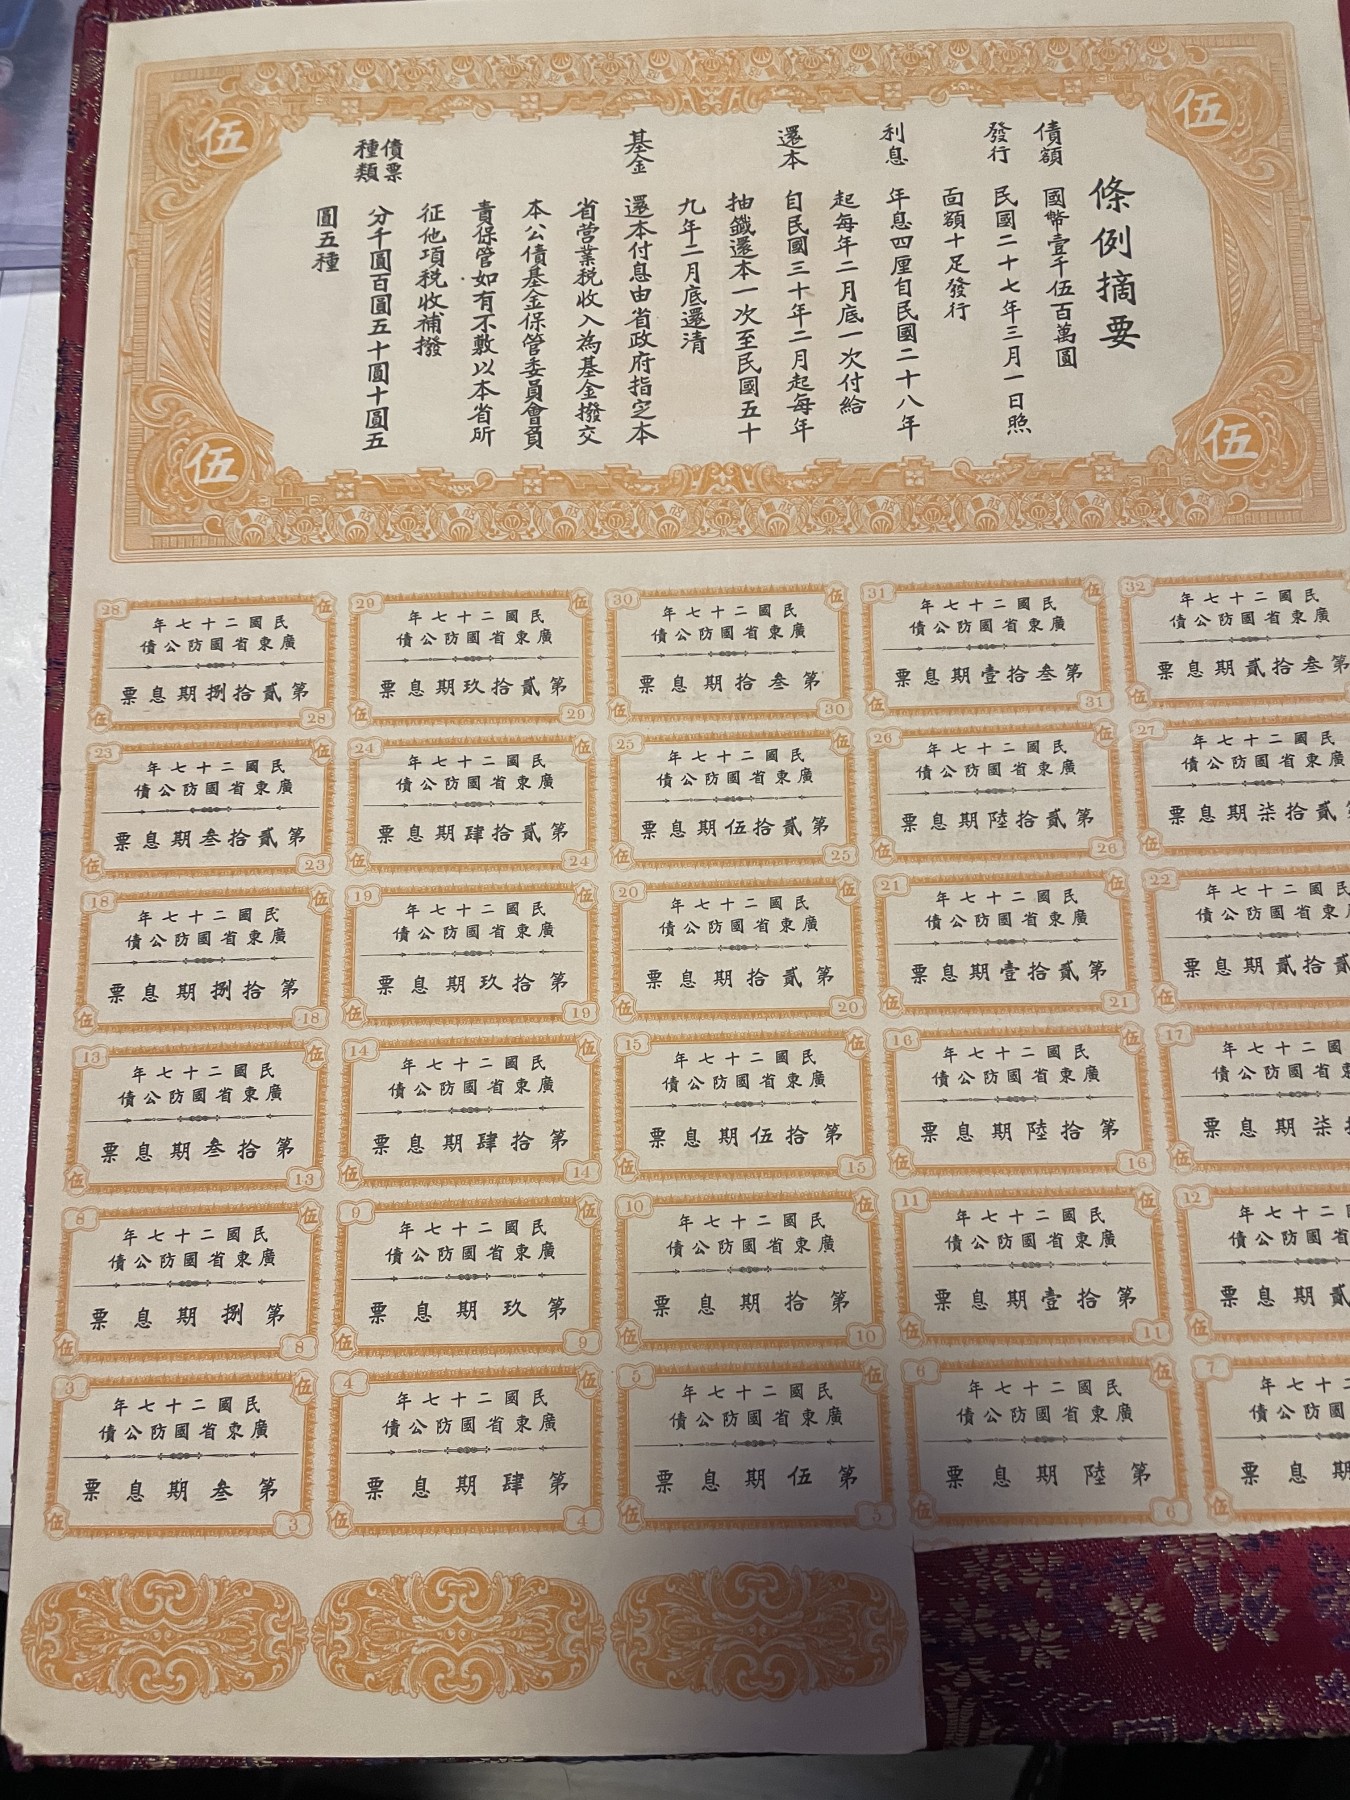 條例摘要
債額 國幣壹千伍百萬圓
發行 民國二十七年三月一日照
面額十足發行
利息 年息四厘自民國二十八年
起每年二月底一次付給
還本 自民國三十年二月起每年
抽籤還本一次至民國五十
九年二月底還清
基金 還本付息由省政府指定本
省营業稅收入為基金撥交
本公債基金保管委員會負
責保管如有不敷以本省所
征他項稅收補撥
債票種類 分千圓百圓五十圓十圓五
圓五種
伍
伍
伍
伍
28 伍
民國二十七年
廣東省國防公債
第貳拾捌期息票
伍 28
29 伍
民國二十七年
廣東省國防公債
第貳拾玖期息票
伍 29
30 伍
民國二十七年
廣東省國防公債
第叁拾期息票
伍 30
31 伍
民國二十七年
廣東省國防公債
第叁拾壹期息票
伍 31
32
民國二十七年
廣東省國防公債
第叁拾貳期息票
伍
23 伍
民國二十七年
廣東省國防公債
第貳拾叁期息票
伍 23
24 伍
民國二十七年
廣東省國防公債
第貳拾肆期息票
伍 24
25 伍
民國二十七年
廣東省國防公債
第貳拾伍期息票
伍 25
26 伍
民國二十七年
廣東省國防公債
第貳拾陸期息票
伍 26
27
民國二十七年
廣東省國防公債
貳拾柒期息票
伍
18 伍
民國二十七年
廣東省國防公債
第拾捌期息票
伍 18
19 伍
民國二十七年
廣東省國防公債
第拾玖期息票
伍 19
20 伍
民國二十七年
廣東省國防公債
第貳拾期息票
伍 20
21 伍
民國二十七年
廣東省國防公債
第貳拾壹期息票
伍 21
22
民國二十七年
東省國防公債
貳拾貳期息票
伍
13 伍
民國二十七年
廣東省國防公債
第拾叁期息票
伍 13
14 伍
民國二十七年
廣東省國防公債
第拾肆期息票
伍 14
15 伍
民國二十七年
廣東省國防公債
第拾伍期息票
伍 15
16 伍
民國二十七年
廣東省國防公債
第拾陸期息票
伍 16
17
國二十七年
東省國防公債
柒期息票
伍
8 伍
民國二十七年
廣東省國防公債
第捌期息票
伍 8
9 伍
民國二十七年
廣東省國防公債
第玖期息票
伍 9
10 伍
民國二十七年
廣東省國防公債
第拾期息票
伍 10
11 伍
民國二十七年
廣東省國防公債
第拾壹期息票
伍 11
12
二十七年
省國防公債
貳期息票
伍
3 伍
民國二十七年
廣東省國防公債
第叁期息票
伍 3
4 伍
民國二十七年
廣東省國防公債
第肆期息票
伍 4
5 伍
民國二十七年
廣東省國防公債
第伍期息票
伍 5
6 伍
民國二十七年
廣東省國防公債
第陸期息票
伍 6
7
二十七年
國防公債
期息票
伍